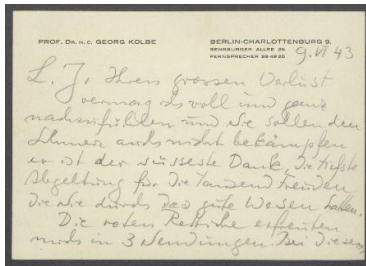 PROF. DR. H. C. GEORG KOLBE
BERLIN-CHARLOTTENBURG 9.
SENSBURGER ALLEE 25
FERNSPRECHER 994925
9. VI 43
L. J., Ihren grossen Verlust
vermag ich voll und ganz
nachzufühlen und Sie sollen den
Schmerz auch nicht bekämpfen
er ist der süsseste Dank, die tiefste
Abgeltung für die tausend Freuden
die Sie durch das gute Wesen hatten.
Die roten Rettiche erfreuten
mich in 3 Sendungen. Bei diesem